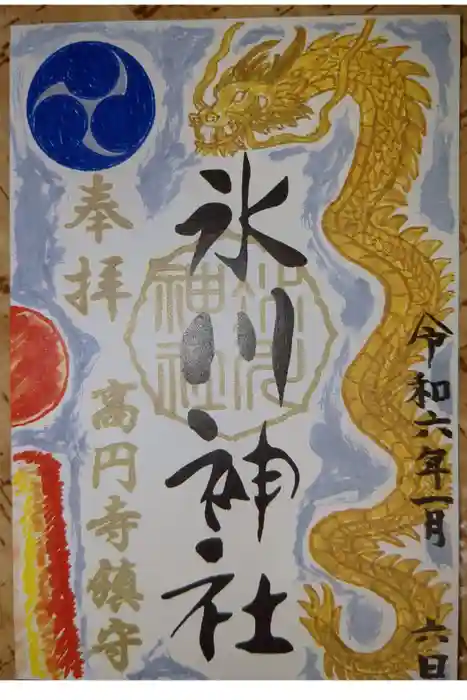 令和六年一月
六日
氷川神社
氷川
神社
奉拝
高円寺鎮守